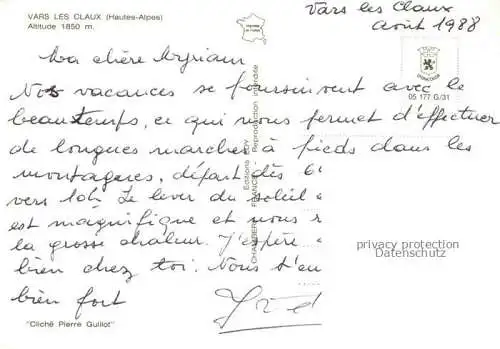 VARS LES CLAUX (Hautes-Alpes)
Altitude 1850 m.
Vars les Claux
Août 1988
Ma chère Myriam
Nos vacances se poursuivent avec le
beau temps, ce qui nous permet d'effectuer
de longues marches à pieds dans les
montagnes, départ dès 6
vers 10h. Le lever du soleil
est magnifique et nous
la grosse chaleur. J'espère
bien chez toi. Nous t'em
bien fort
05 177 G/31
Editions EDY
CHAMBERY FRANCE - Reproduction interdite
privacy protection
Datenschutz
"Cliché Pierre Guillot"